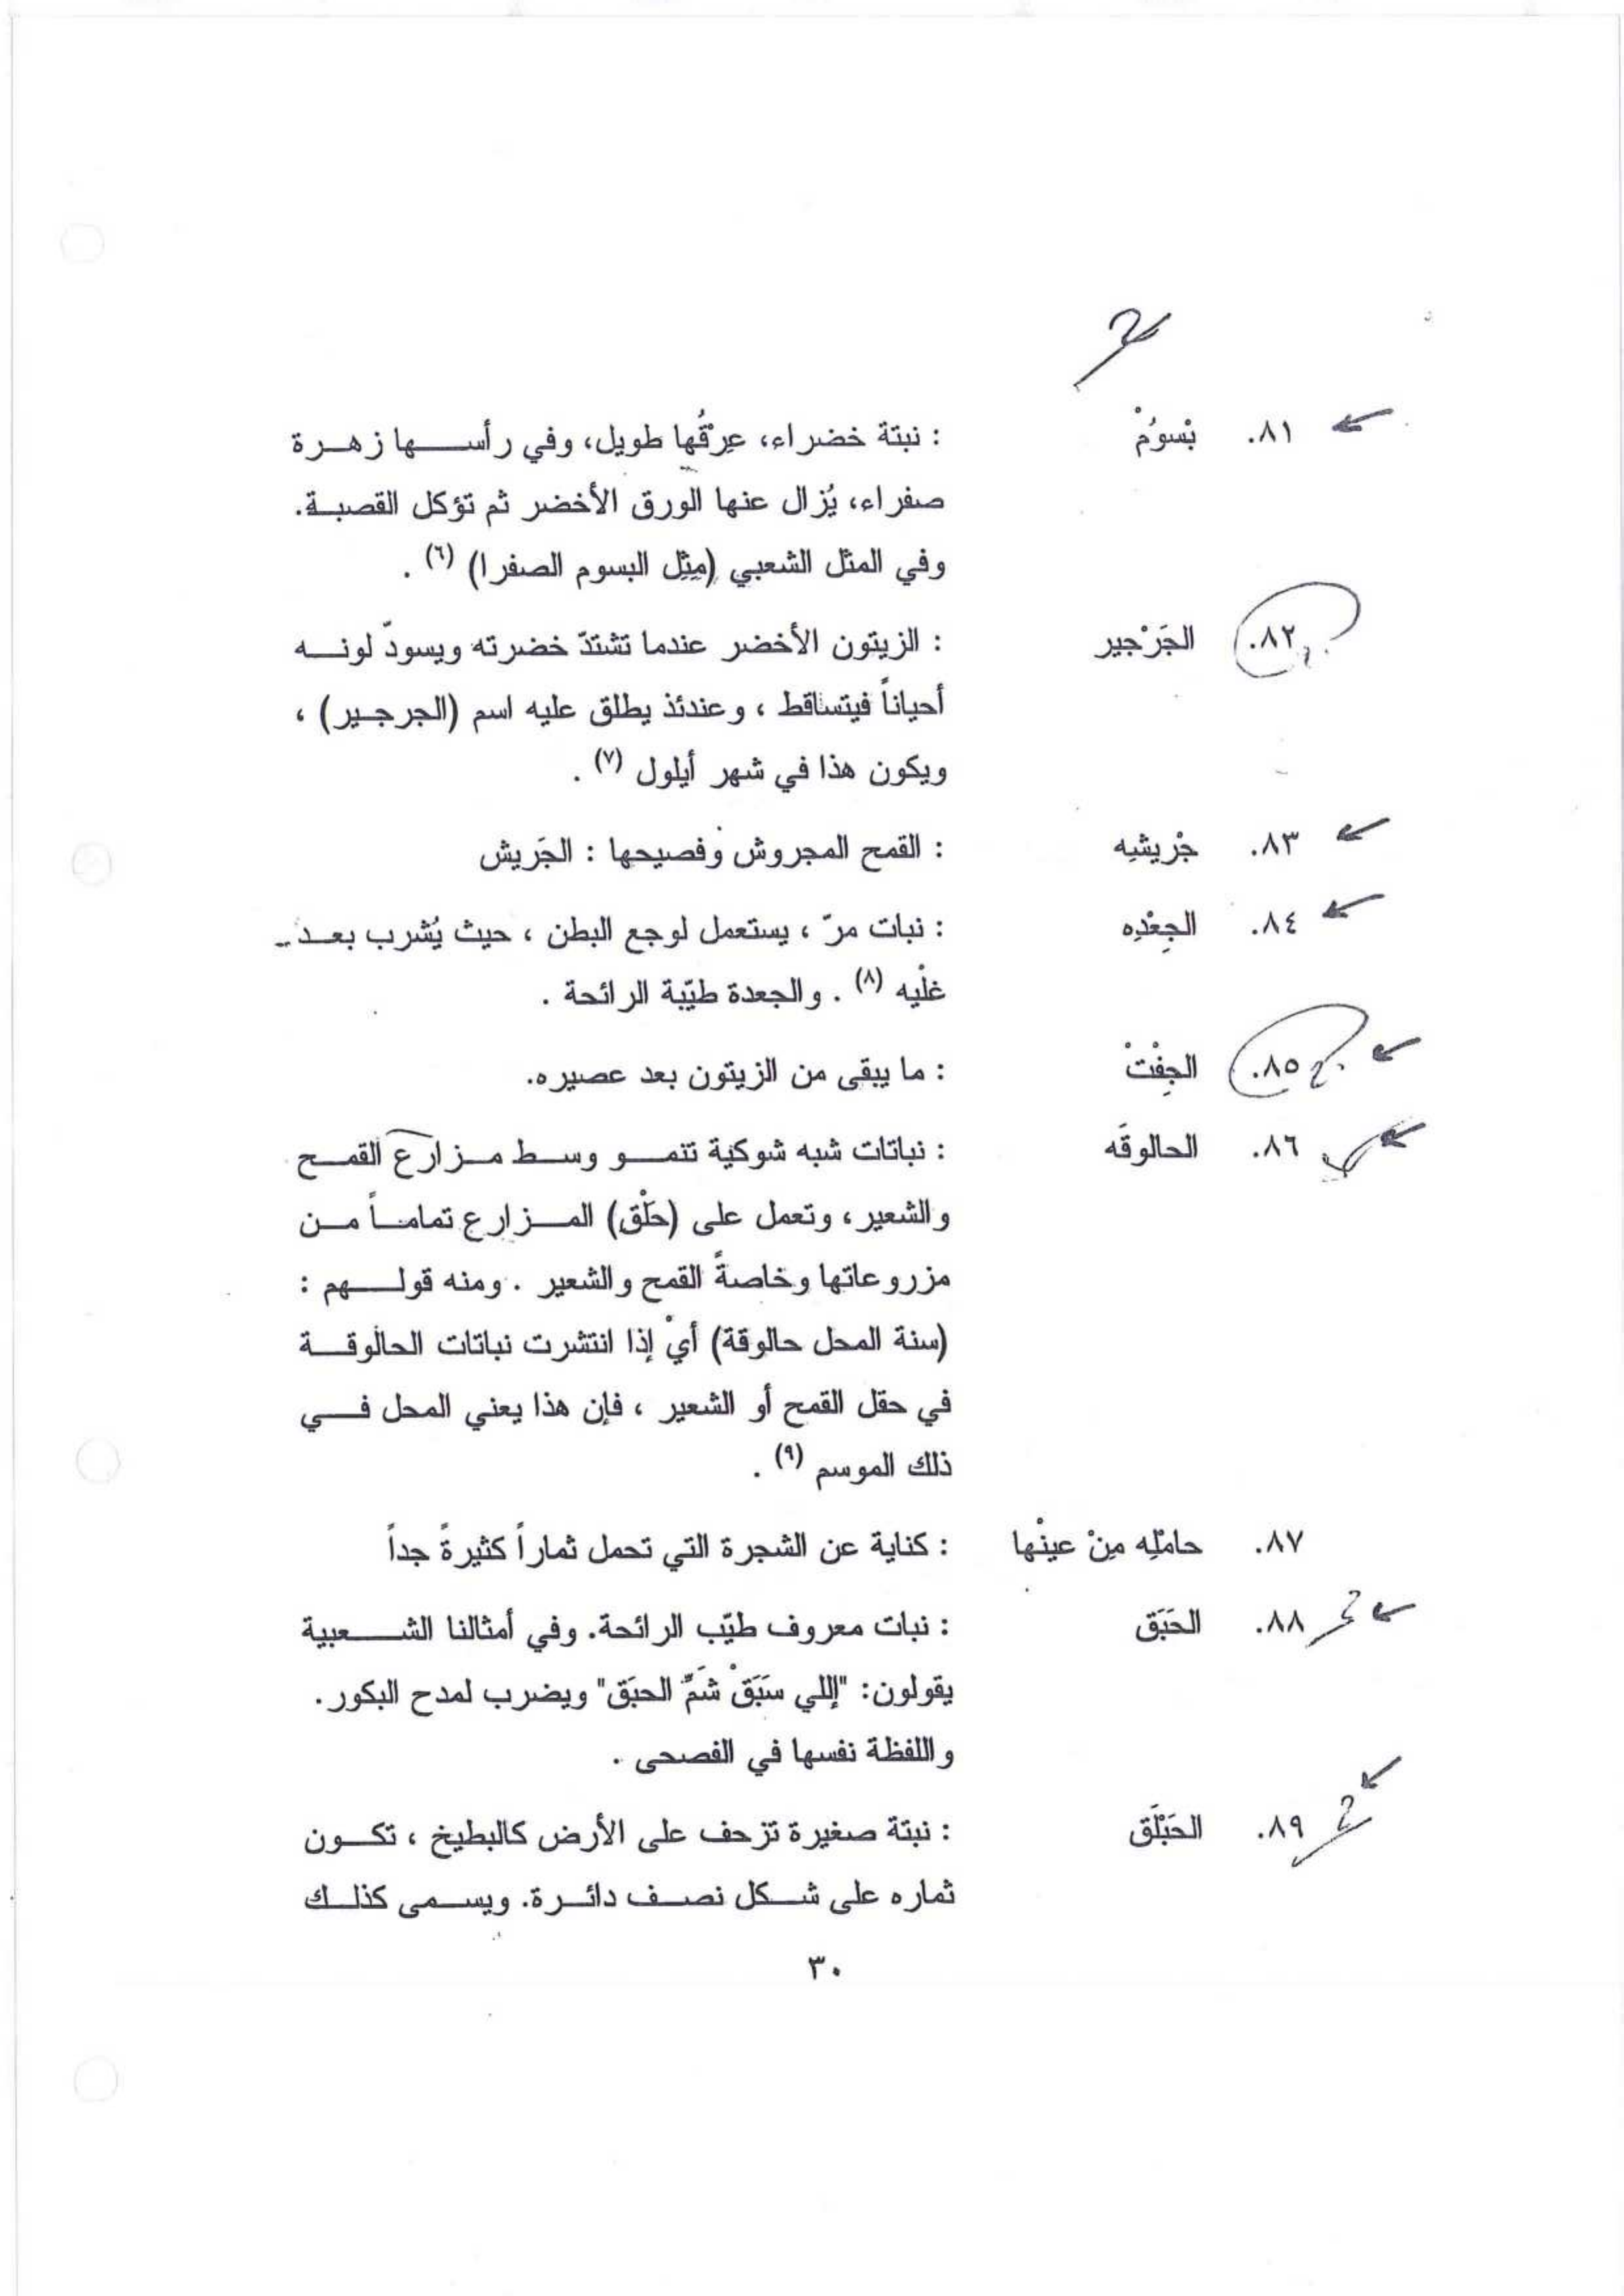 ٨١. بْسوُمْ : نبتة خضراء، عِرْقُها طويل، وفي رأسها زهرة
صفراء، يُزال عنها الورق الأخضر ثم تؤكل القصبة.
وفي المثل الشعبي (مِثِل البسوم الصفرا) (٦) .
٨٢. الجَرْجير : الزيتون الأخضر عندما تشتدّ خضرته ويسودّ لونه
أحياناً فيتساقط ، وعندئذ يطلق عليه اسم (الجرجير) ،
ويكون هذا في شهر أيلول (٧) .
٨٣. جْريشِه : القمح المجروش وفصيحها : الجَريش
٨٤. الجِعْدِه : نبات مرّ ، يستعمل لوجع البطن ، حيث يُشرب بعد
غلْيه (٨) . والجعدة طيّبة الرائحة .
٨٥. الجِفْتْ : ما يبقى من الزيتون بعد عصيره.
٨٦. الحالوقَه : نباتات شبه شوكية تنمو وسط مزارع القمح
والشعير، وتعمل على (حَلْق) المزارع تماماً من
مزروعاتها وخاصةً القمح والشعير . ومنه قولهم :
(سنة المحل حالوقة) أيْ إذا انتشرت نباتات الحالوقة
في حقل القمح أو الشعير ، فإن هذا يعني المحل في
ذلك الموسم (٩) .
٨٧. حامْلِه مِنْ عينْها : كناية عن الشجرة التي تحمل ثماراً كثيرةً جداً
٨٨. الحَبَق : نبات معروف طيّب الرائحة. وفي أمثالنا الشعبية
يقولون: "إللي سَبَقْ شَمِّ الحبَق" ويضرب لمدح البكور.
واللفظة نفسها في الفصحى .
٨٩. الحَبْلَق : نبتة صغيرة تزحف على الأرض كالبطيخ ، تكون
ثماره على شكل نصف دائرة. ويسمى كذلك
٣٠